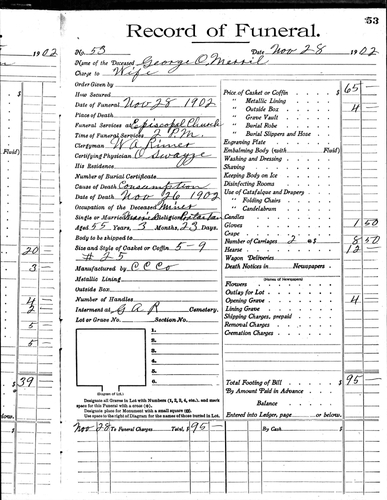 53
1902
Record of Funeral.
No. 53 Date Nov 28 1902
Name of the Deceased George O. Merril
Charge to Wife
Order Given by
How Secured
Date of Funeral Nov 28 1902
Place of Death
Funeral Services at Episcopel Church
Time of Funeral Services 2 P.M.
Clergyman W A Rimer
Certifying Physician O Swayze
His Residence
Number of Burial Certificate
Cause of Death Consumption
Date of Death Nov 26 1902
Occupation of the Deceased Miner
Single or Married Married Religion
Aged 55 Years, 3 Months, 23 Days.
Body to be shipped to
Size and Style of Casket or Coffin 5-9
# 25
Manufactured by C C Co
Metallic Lining
Outside Box
Number of Handles
Interment at G A R Cemetery.
Lot or Grave No. Section No.
1.
2.
3.
4.
5.
6.
(Diagram of Lot.)
Designate all Graves in Lot with Numbers (1, 2, 3, 4, etc.), and mark
space for this Funeral with a cross (x).
Designate place for Monument with a small square.
Use space to the right of Diagram for the names of those buried in Lot.
Price of Casket or Coffin $ 65 —
" Metallic Lining
" Outside Box 4 —
" Grave Vault
" Burial Robe
" Burial Slippers and Hose
Engraving Plate
Embalming Body (with Fluid)
Washing and Dressing
Shaving
Keeping Body on Ice
Disinfecting Rooms
Use of Catafalque and Drapery
" Folding Chairs
" Candelabrum
Candles
Gloves 1 50
Crape
Number of Carriages 2 @ $ 8 50
Hearse 12
Wagon Deliveries
Death Notices in Newspapers
(Names of Newspapers)
Flowers
Outlay for Lot
Opening Grave 4 —
Lining Grave
Shipping Charges, prepaid
Removal Charges
Cremation Charges
Total Footing of Bill $ 95 —
By Amount Paid in Advance
Balance
Entered into Ledger, page or below.
Nov 28 To Funeral Charges Total, $ 95 —
By Cash
Fluid)
20
3
4
2
5
5
$ 39
below.